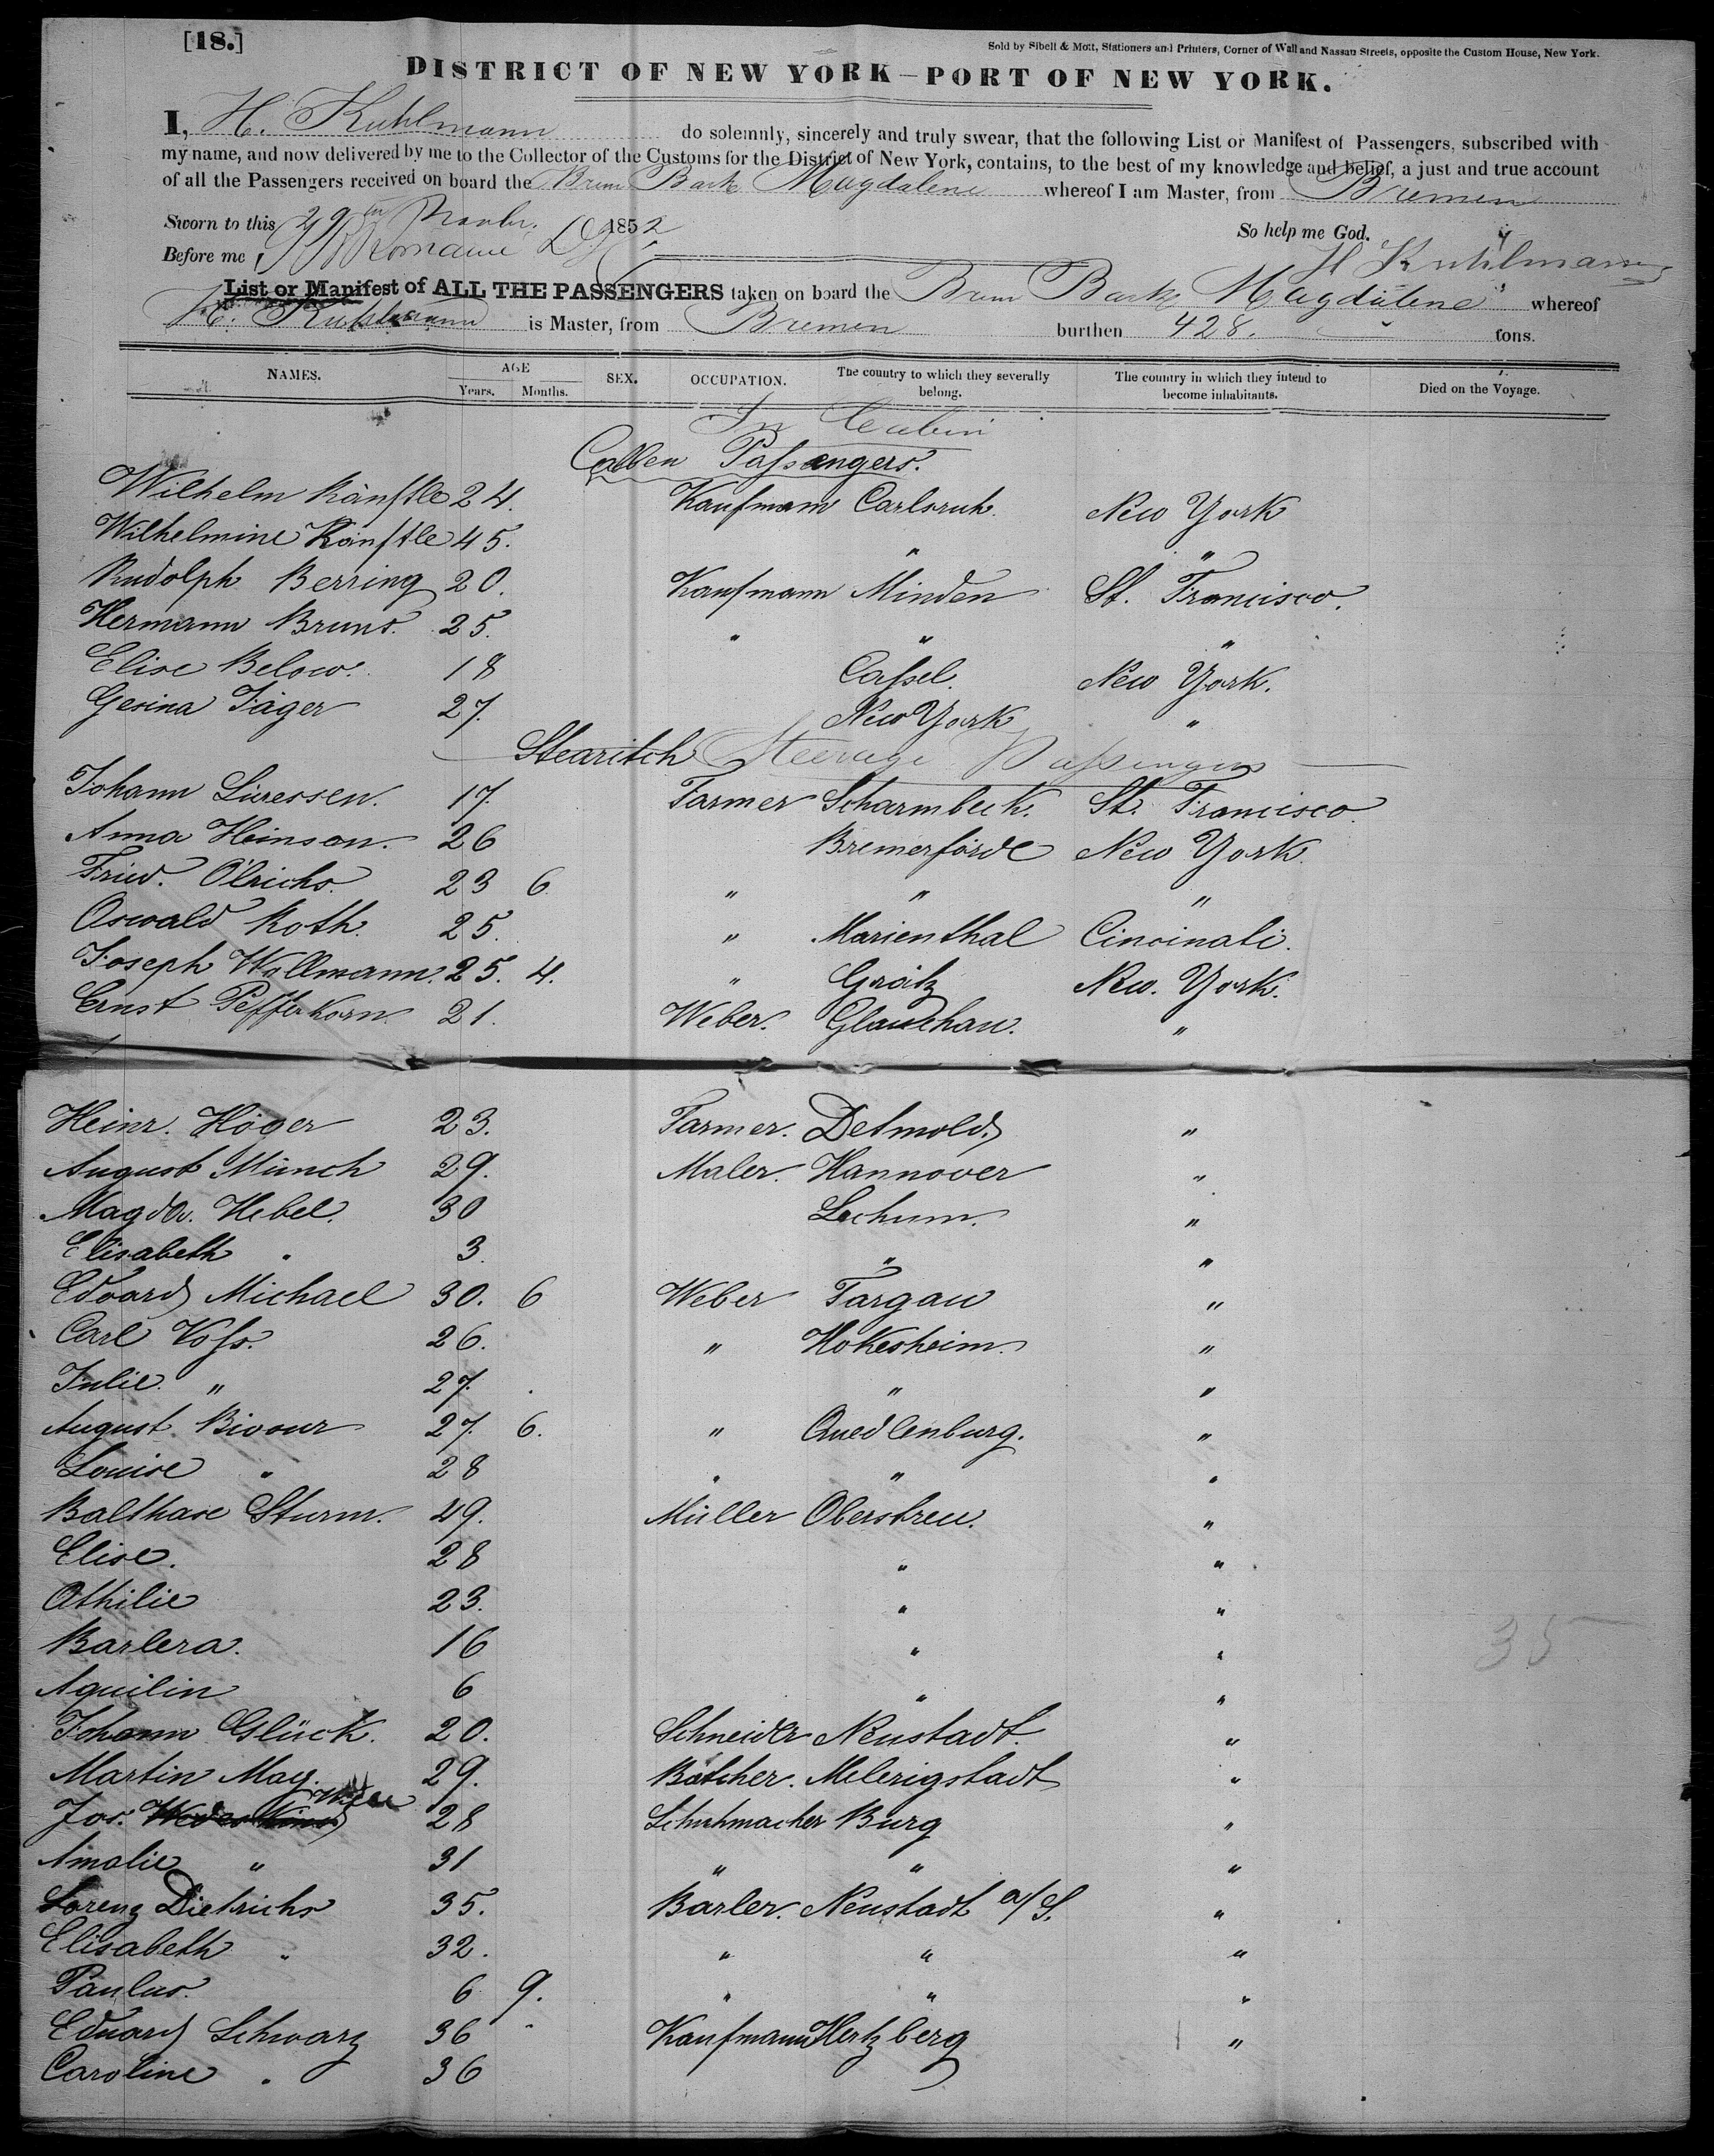 [18.]
Sold by Sibell & Mott, Stationers and Printers, Corner of Wall and Nassau Streets, opposite the Custom House, New York.
DISTRICT OF NEW YORK—PORT OF NEW YORK.
I, H. Kuhlmann do solemnly, sincerely and truly swear, that the following List or Manifest of Passengers, subscribed with
my name, and now delivered by me to the Collector of the Customs for the District of New York, contains, to the best of my knowledge and belief, a just and true account
of all the Passengers received on board the Brem Bark Magdalene whereof I am Master, from Bremen
Sworn to this 29th 1852
So help me God.
Before me
H Kuhlmann
List or Manifest of ALL THE PASSENGERS taken on board the Brem Bark Magdalene whereof
H. Kuhlmann is Master, from Bremen burthen 428. tons.
NAMES. AGE Years. Months. SEX. OCCUPATION. The country to which they severally belong. The country in which they intend to become inhabitants. Died on the Voyage.
In Cabin
Passengers.
Wilhelm Ränftle 24. Kaufmann Carlsruh. New York
Wilhelmine Ränftle 45. " "
Rudolph Berring 20. Kaufmann Minden St. Francisco.
Hermann Bruns. 25. " " "
Elise Below. 18 Caſsel. New York.
Gesina Jäger 27. New York "
Stearitch Steerage Paſsengers
Johann Lüressen. 17. Farmer Scharmbeck. St. Francisco.
Anna Heinson. 26 Bremerförde New York.
Fried. Ölrichs. 23 6. " " "
Oswald Roth. 25. " Marienthal Cincinati.
Joseph Wollmann. 25. 4. " Grätz New. York.
Ernst Pefferkorn. 21. Weber. Glauchau. "
Heinr. Höger 23. Farmer. Detmold. "
August Münch 29. Maler. Hannover "
Magda. Hebel. 30 Lochum. "
Elisabeth " 3. " "
Edoard Michael 30. 6 Weber Targau "
Carl Voſs. 26. " Hokesheim. "
Julie. " 27. " "
August Bivour 27. 6. " Quedlenburg. "
Louise " 28 " " "
Balthase Sturm. 49. Müller Oberstreu. "
Elise. 28 " "
Othilie 23. " "
Barlera. 16 " "
Aquilin 6 " "
Johann Glück. 20. Schneider Neustadt. "
Martin May. 29. Bötcher. Melerigstadt "
Jos. 28 Schuhmacher Burg "
Amalie " 31 " " "
Lorenz Dietrichs 35. Barler. Neustadt a/S. "
Elisabeth " 32. " " "
Paulus. 6 9. " " "
Eduard Schwarz 36 " Kaufmann Hertzberg "
Caroline " 36
35